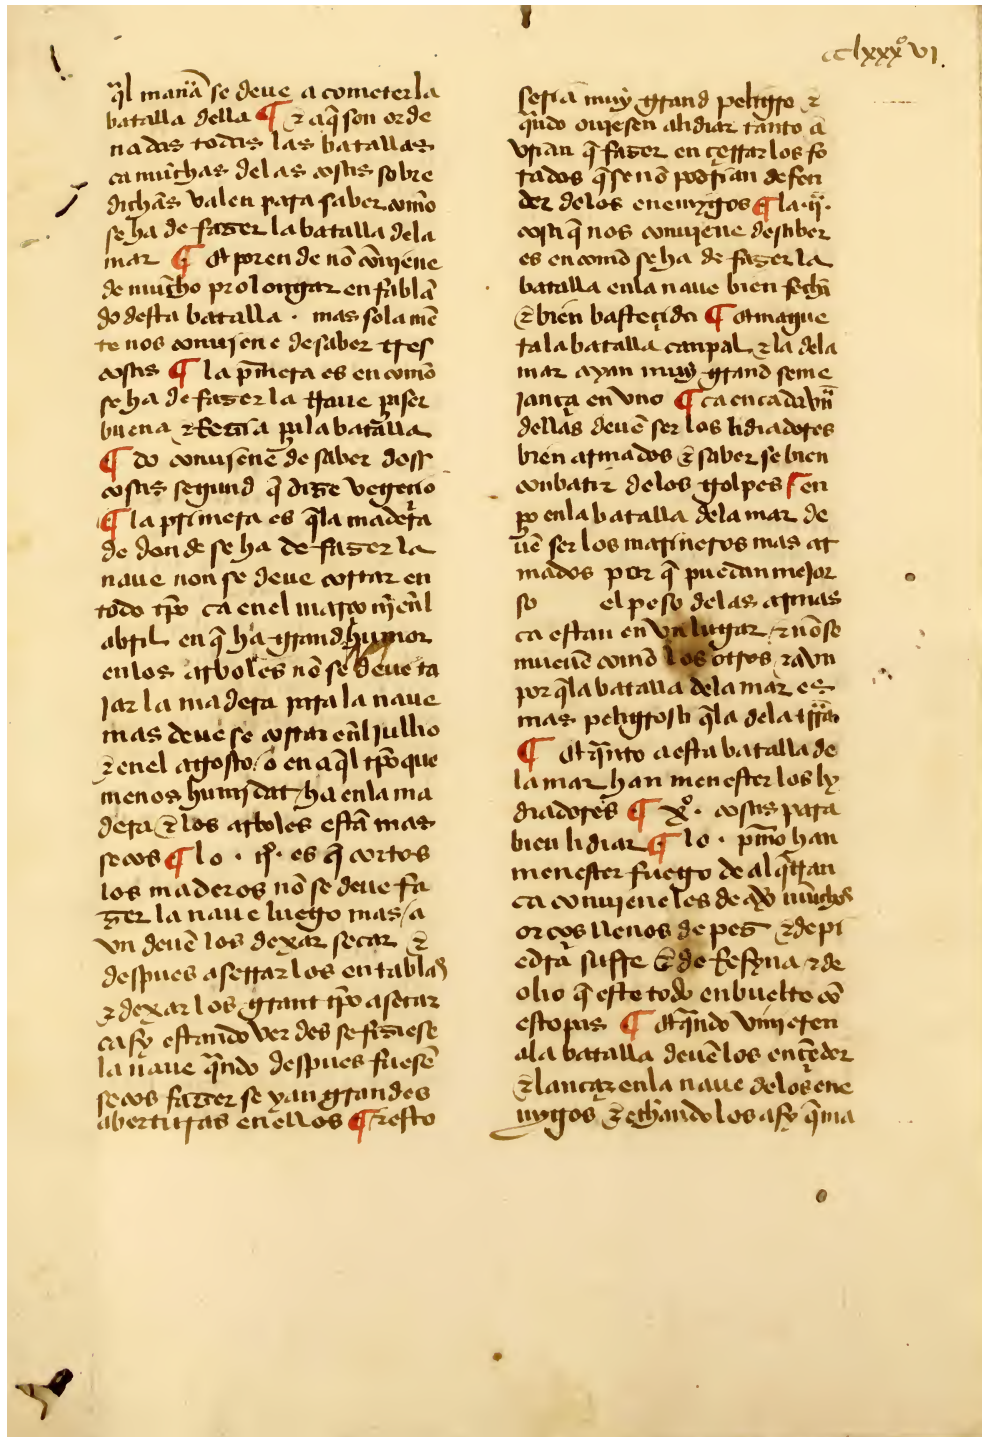 cclxxxº vi
q̄l manãa se deue a cometer la
batalla della ¶ ⁊ aq̃ son orde
nadas todas las batallas
ca mũchas delas cosas sobre
dichãs valen para saber com̃o
se ha de fazer la batalla dela
mar ¶ Et por en de nõ cõuiene
de mũcho prolongar en fablã
do desta batalla · mas sola mẽ
te nos conuiene de saber tres
cosas ¶ la p̃mera es en com̃o
se ha de fazer la naue
buena ⁊ la batalla
¶ do conuienẽ de saber dos
cosas segund q̃ dize vegeçio
¶ la primera es q̃la madera
de donde se ha de fazer la
naue non se deue cortar en
todo tp̃o ca en el março nj̃ enl̃
abril en q̃ ha grand humor
en los arboles nõ se deue ta
jar la madera para la naue
mas deue se cortar enl̃ julho
⁊ en el agosto / o en aq̃l tp̃o que
menos humjdat / ha en la ma
dera ⁊ los arboles estã mas
secos ¶ lo · ijº· es q̃ cortos
los maderos nõ se deue fa
zer la naue luego mas / a
vn deuẽ los dexar secar ⁊
despues aserrar los en tablas
⁊ dexar los grant tp̃o a secar
ca sy estando verdes se fiziese
la naue q̃ndo despues fuesẽ
secos fazer se yan grandes
aberturas en ellos ¶ ⁊ esto
seria muy grand peligro ⁊
q̃ndo ouiesen a lidiar tanto a
vrian q̃ fazer en çerrar los fo
rados q̃ se nõ podrian defen
der delos enemygos ¶ la ·ij·
cosa q̃ nos conuiene de saber
es en com̃o se ha de fazer la
batalla en la naue bien fecha
⁊ bien basteçida ¶ Et maguer
la batalla canpal ⁊ la dela
mar ayan muy grand seme
jança en vno ¶ ca en cada vña
dellas deuẽ ser los lidiadores
bien armados ⁊ saber se bien
conbatir de los golpes ¶ en
po en la batalla dela mar de
uẽ ser los marineros mas ar
mados por q̃ puedan mejor
so el peso delas armas
ca estan en vn lugar / ⁊ nõ se
mueuẽ com̃o los otros / ⁊ avn
por q̃la batalla dela mar es
mas peligrosa q̃la dela trr̃a
¶ Et q̃nto a esta batalla de
la mar han menester los ly
diadores ¶ xº· cosas para
bien lidiar ¶ lo · pm̃o han
menester fuego de alq̃tran
ca conuieneles de auer mũchos
orços llenos de pez ⁊ de pi
edra sufre ⁊ de Resyna ⁊ de
olio q̃ este todo enbuelto cõ
estopas ¶ Et q̃ndo vinieren
ala batalla deuẽ los ençẽder
⁊ lançar en la naue delos ene
mygos ⁊ echando los asy q̃ma